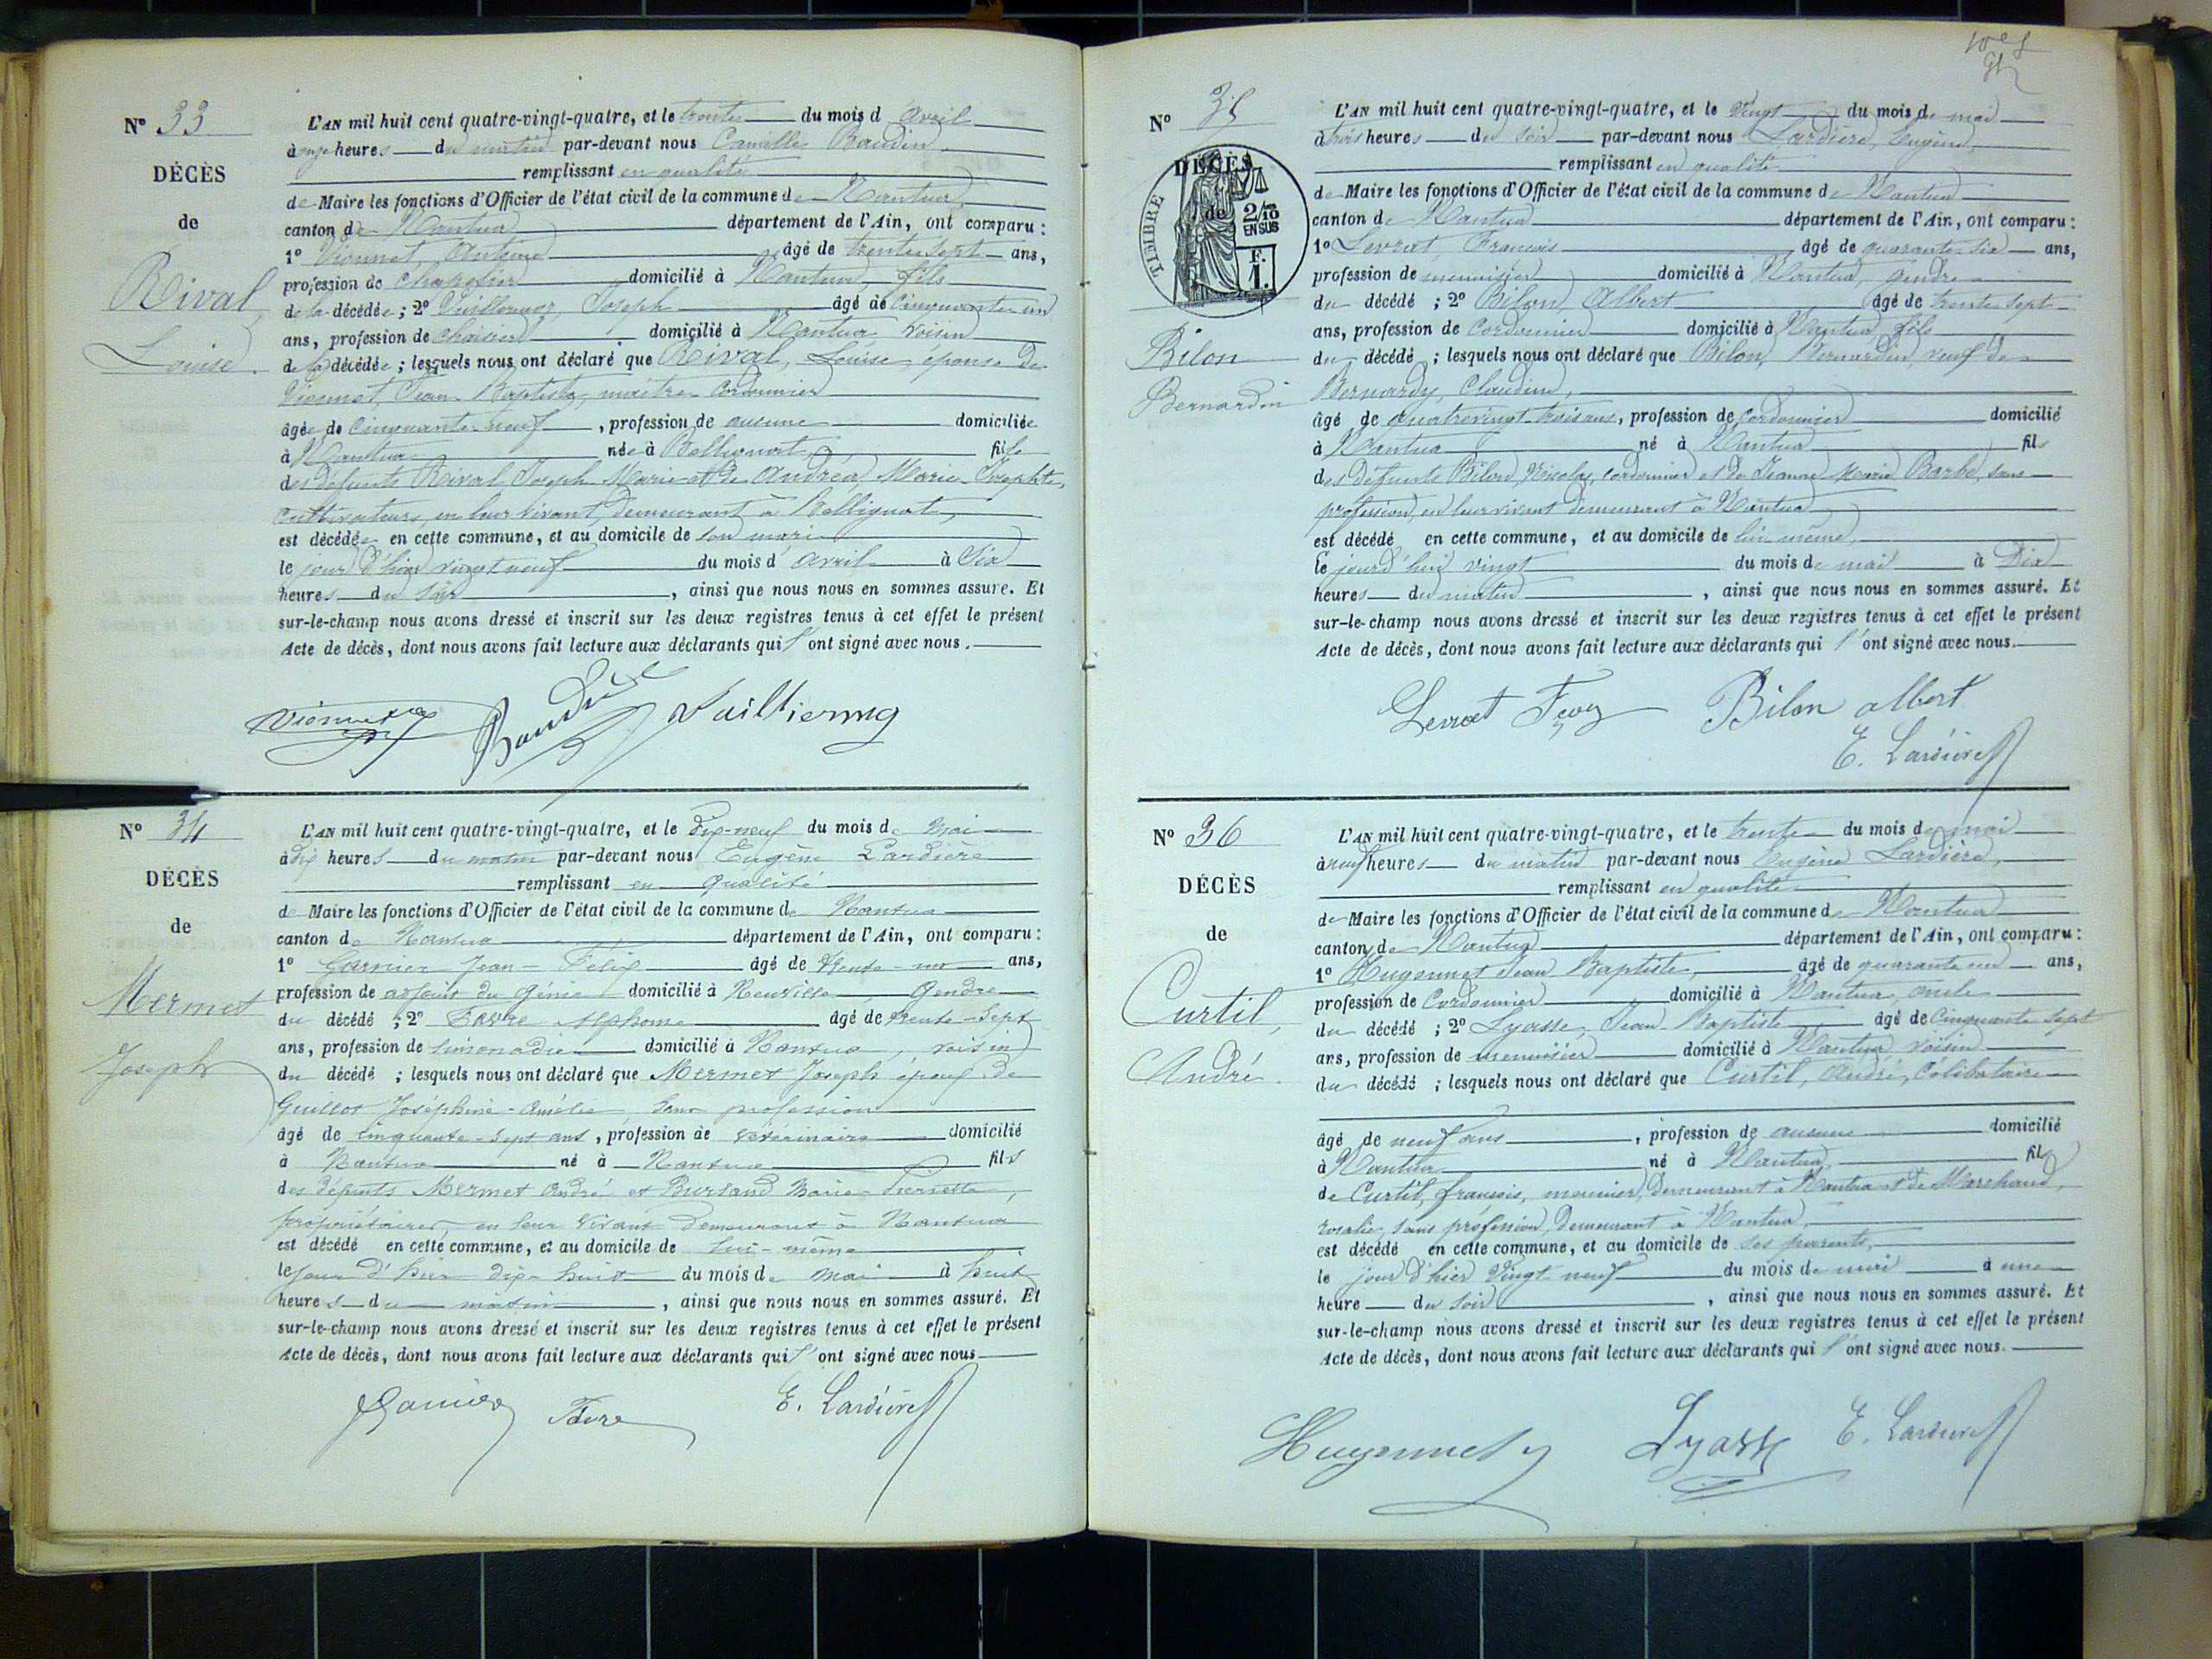 Nº 33
DÉCÈS
de
Rival,
Louise.
L'AN mil huit cent quatre-vingt-quatre, et le trente du mois d'avril
à onze heures du matin par-devant nous Camille Baudin
remplissant en qualité
de Maire les fonctions d'Officier de l'état civil de la commune de Nantua,
canton de Nantua département de l'Ain, ont comparu :
1º Vionnet, Antoine âgé de trente sept ans,
profession de chapelier domicilié à Nantua, fils
de la décédée ; 2º Vuillermoz, Joseph âgé de cinquante un
ans, profession de domicilié à Nantua voisin
de la décédée ; lesquels nous ont déclaré que Rival, Louise, épouse de
Vionnet, Jean Baptiste, maître cordonnier
âgée de cinquante neuf , profession de aucune domiciliée
à Nantua née à Bellignat, fille
des défunts Rival Joseph Marie et de Andréa, Marie Josephte,
cultivateurs, en leur vivant, demeurant à Bellignat,
est décédée en cette commune, et au domicile de son mari
le jour d'hier vingt neuf du mois d'avril à six
heures du soir , ainsi que nous nous en sommes assuré. Et
sur-le-champ nous avons dressé et inscrit sur les deux registres tenus à cet effet le présent
Acte de décès, dont nous avons fait lecture aux déclarants qui l'ont signé avec nous.
Vionnet Baudin Vuilliermoz
Nº 34
DÉCÈS
de
Mermet
Joseph
L'AN mil huit cent quatre-vingt-quatre, et le dix-neuf du mois de Mai
à dix heures du matin par-devant nous Eugène Lardière
remplissant en qualité
de Maire les fonctions d'Officier de l'état civil de la commune de Nantua
canton de Nantua département de l'Ain, ont comparu :
1º Garnier Jean-Félix âgé de trente-un ans,
profession de adjoint du Génie domicilié à Neuville, Gendre
du décédé ; 2º Favre Alphonse âgé de trente-sept
ans, profession de limonadier domicilié à Nantua, voisin
du décédé ; lesquels nous ont déclaré que Mermet Joseph époux de
Guillot Joséphine-Amélie sans profession
âgé de cinquante-sept ans , profession de vétérinaire domicilié
à Nantua né à Nantua fils
des défunts Mermet André et Burtand Marie-Pierrette,
propriétaires, en leur vivant demeurant à Nantua
est décédé en cette commune, et au domicile de lui-même
le jour d'hier dix-huit du mois de Mai à huit
heures du matin , ainsi que nous nous en sommes assuré. Et
sur-le-champ nous avons dressé et inscrit sur les deux registres tenus à cet effet le présent
Acte de décès, dont nous avons fait lecture aux déclarants qui l'ont signé avec nous
Garnier Favre E. Lardière
Nº 35
DÉCÈS
de
TIMBRE
2/10
EN SUS
F.
1.
Bilon
Bernardin
L'AN mil huit cent quatre-vingt-quatre, et le vingt du mois de mai
à trois heures du soir par-devant nous Lardière, Eugène,
remplissant en qualité
de Maire les fonctions d'Officier de l'état civil de la commune de Nantua
canton de Nantua département de l'Ain, ont comparu :
1º Levrat, François âgé de quarante six ans,
profession de menuisier domicilié à Nantua, gendre
du décédé ; 2º Bilon Albert âgé de trente sept
ans, profession de Cordonnier domicilié à Nantua, fils
du décédé ; lesquels nous ont déclaré que Bilon, Bernardin, veuf de
Bernardy, Claudine,
âgé de quatrevingt trois ans, profession de cordonnier domicilié
à Nantua né à Nantua fils
des défunts Bilon, Nicolas, cordonnier et de Jeanne Marie Barbe, sans
profession, en leur vivant demeurant à Nantua
est décédé en cette commune, et au domicile de lui-même,
le jourd'hui vingt du mois de mai à Dix
heures du matin , ainsi que nous nous en sommes assuré. Et
sur-le-champ nous avons dressé et inscrit sur les deux registres tenus à cet effet le présent
Acte de décès, dont nous avons fait lecture aux déclarants qui l'ont signé avec nous.
Levrat Fçois Bilon albert
E. Lardière
Nº 36
DÉCÈS
de
Curtil,
André.
L'AN mil huit cent quatre-vingt-quatre, et le trente du mois de mai
à neuf heures du matin par-devant nous Eugène Lardière,
remplissant en qualité
de Maire les fonctions d'Officier de l'état civil de la commune de Nantua
canton de Nantua département de l'Ain, ont comparu :
1º Hugonnet Jean Baptiste, âgé de quarante un ans,
profession de Cordonnier domicilié à Nantua, oncle
du décédé ; 2º Lyasse, Jean Baptiste âgé de cinquante sept
ans, profession de menuisier domicilié à Nantua voisin
du décédé ; lesquels nous ont déclaré que Curtil, André, Célibataire
âgé de neuf ans , profession de aucune domicilié
à Nantua né à Nantua, fils
de Curtil, françois, meunier, demeurant à Nantua et de Marchand,
rosalie, sans profession, demeurant à Nantua,
est décédé en cette commune, et au domicile de ses parents,
le jour d'hier vingt neuf du mois de mai à une
heure du soir , ainsi que nous nous en sommes assuré. Et
sur-le-champ nous avons dressé et inscrit sur les deux registres tenus à cet effet le présent
Acte de décès, dont nous avons fait lecture aux déclarants qui l'ont signé avec nous.
Hugonnet Lyasse E. Lardière